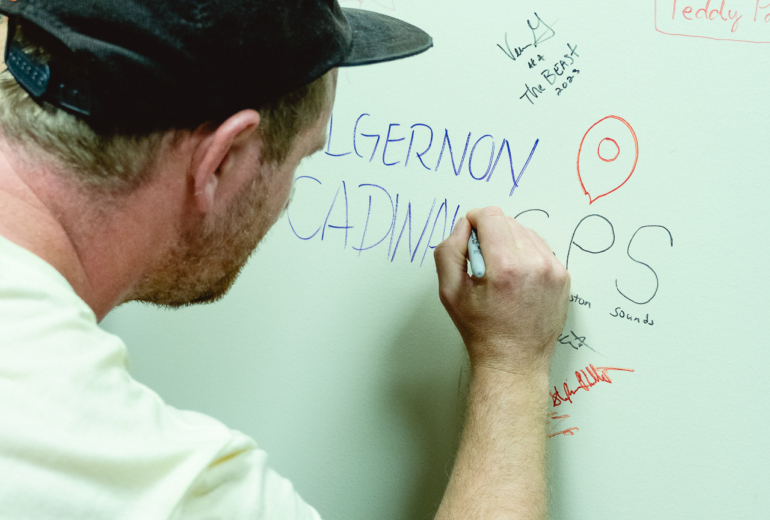 Teddy Pa
The BEAST
2023
LGERNON
CADINA
GPS
ston sounds